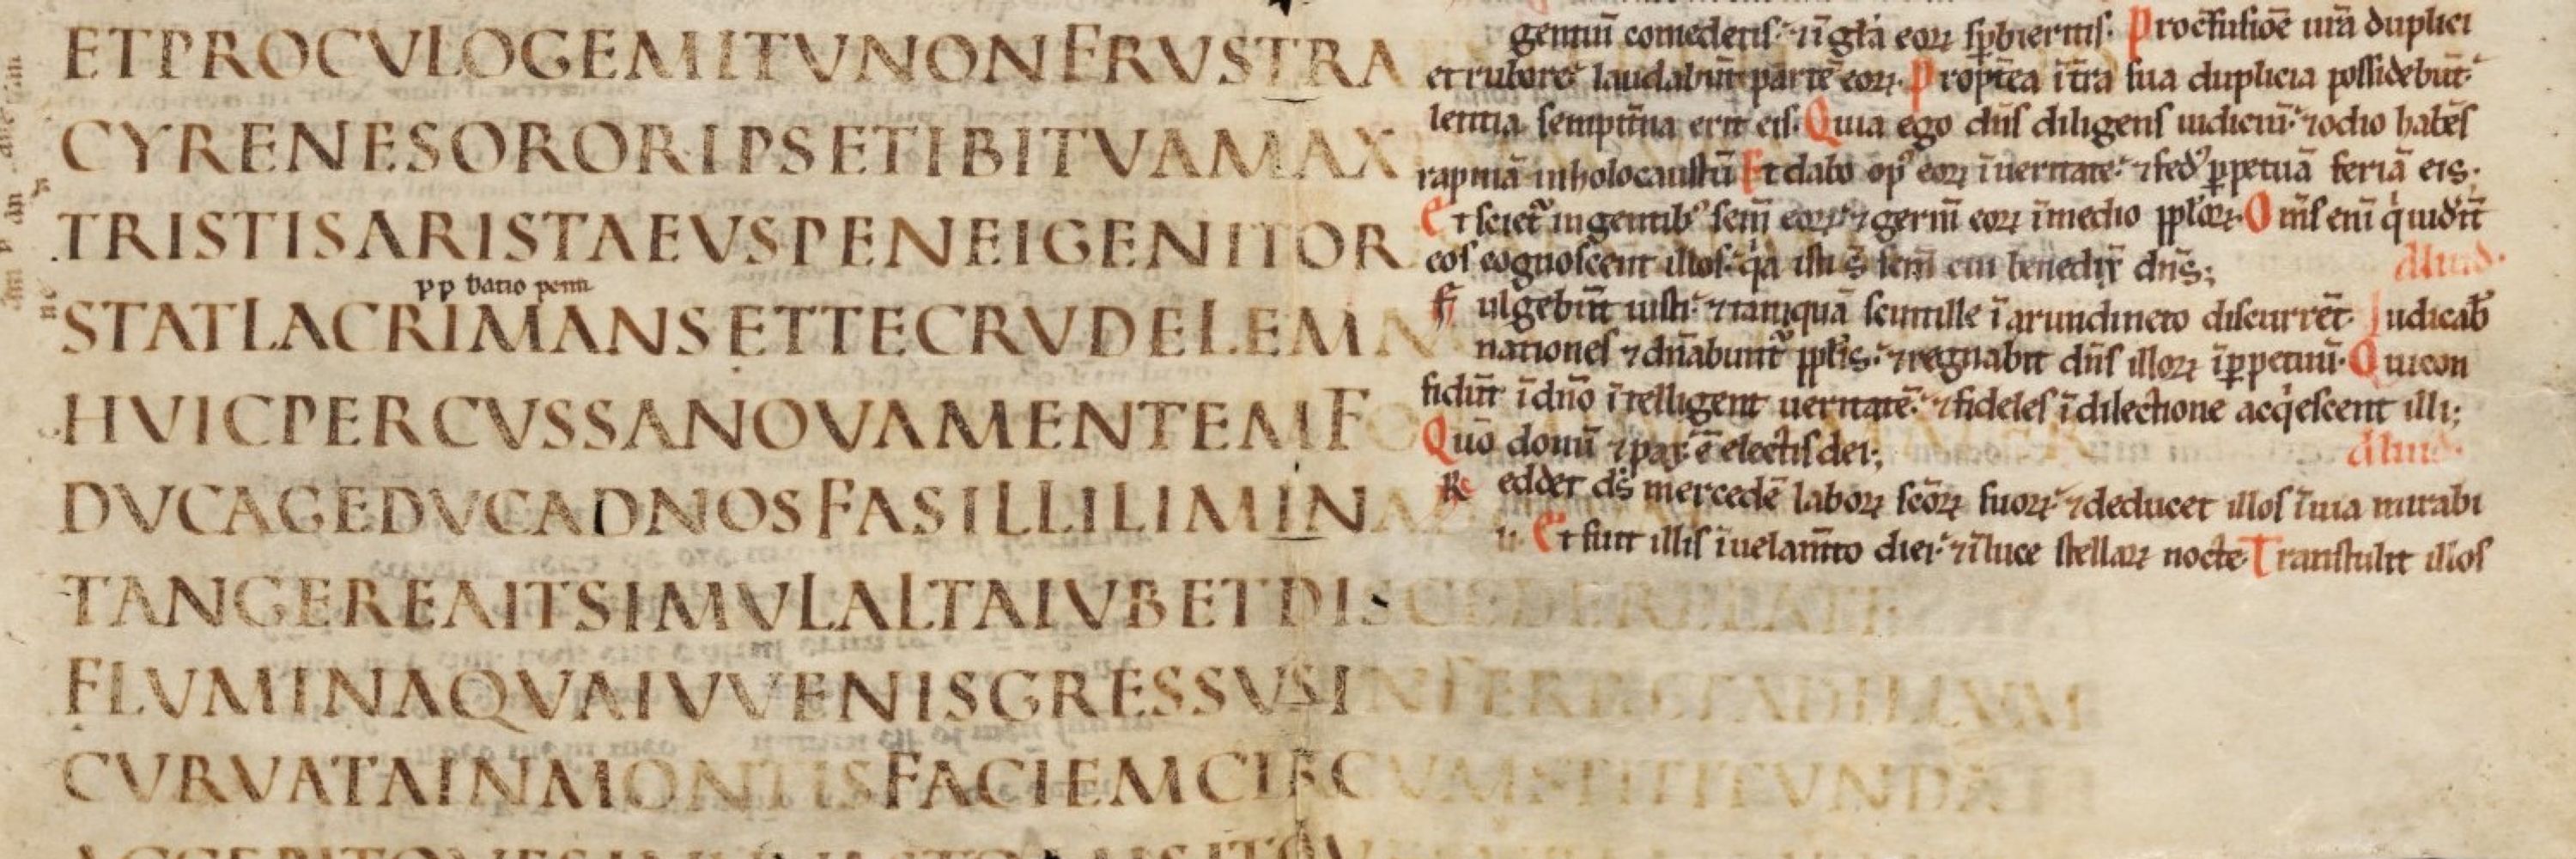 ETPROCULOGEMITUNONFRUSTRA
CYRENESORORIPSETIBITUAMAX
TRISTISARISTAEUSPENEIGENITOR
STATLACRIMANSETTECRUDELEMN
HUICPERCUSSANOUAMENTEMF
DUCAGEDUCADNOSFASILLILIMINA
TANGEREAITSIMULALTAIUBETDISCEDERELATE
FLUMINAQUAIUUENISGRESSUSINFERRETADILLUM
CURUATAINMONTISFACIEMCIRCUMSTITITUNDA
gentiū comedetis· ⁊ ī gl̄a eoꝝ sp̄bietis· Pro cōfusiōe ur̄a duplici
et rubore laudabūt partē eoꝝ· Propt̄ea ī t̄ra sua duplicia possidebūt·
letitia sempit̄na erit eis· Quia ego dn̄s diligens iudiciū· ⁊ odio habēs
rapinā in holocaustū Et dabo opꝰ eoꝝ ī ueritate· ⁊ fedꝰ ꝑpetuā feriā eis·
Et sciet᷑ in gentibꝰ sem̄ eoꝝ· ⁊ germ̄ eoꝝ ī medio pp̄loꝝ· Om̄s eni q̇ uid̄īt
eos cognoscent illos· q̇a isti s̄ sem̄ cui benedix̄ dn̄s;
Aliud·
Fulgebūt iusti· ⁊ tamquā scintille ī arundineto discurrēt· Iudicab̄
nationes ⁊ dn̄abunt᷑ pp̄lis· ⁊ regnabit dn̄s illoꝝ ī ꝑpetuū· Qui con
fidūt ī dn̄o ītelligent ueritatē· ⁊ fideles ī dilectione acq̇escent illi;
Quō donū ⁊ pax ē electis dei;
Aliud·
Reddet ds̄ mercedē laboꝝ sc̄oꝝ suoꝝ· ⁊ deducet illos ī uia mirabi
li· Et fuit illis ī uelam̄to diei· ⁊ ī luce stellaꝝ nocte· Transtulit illos